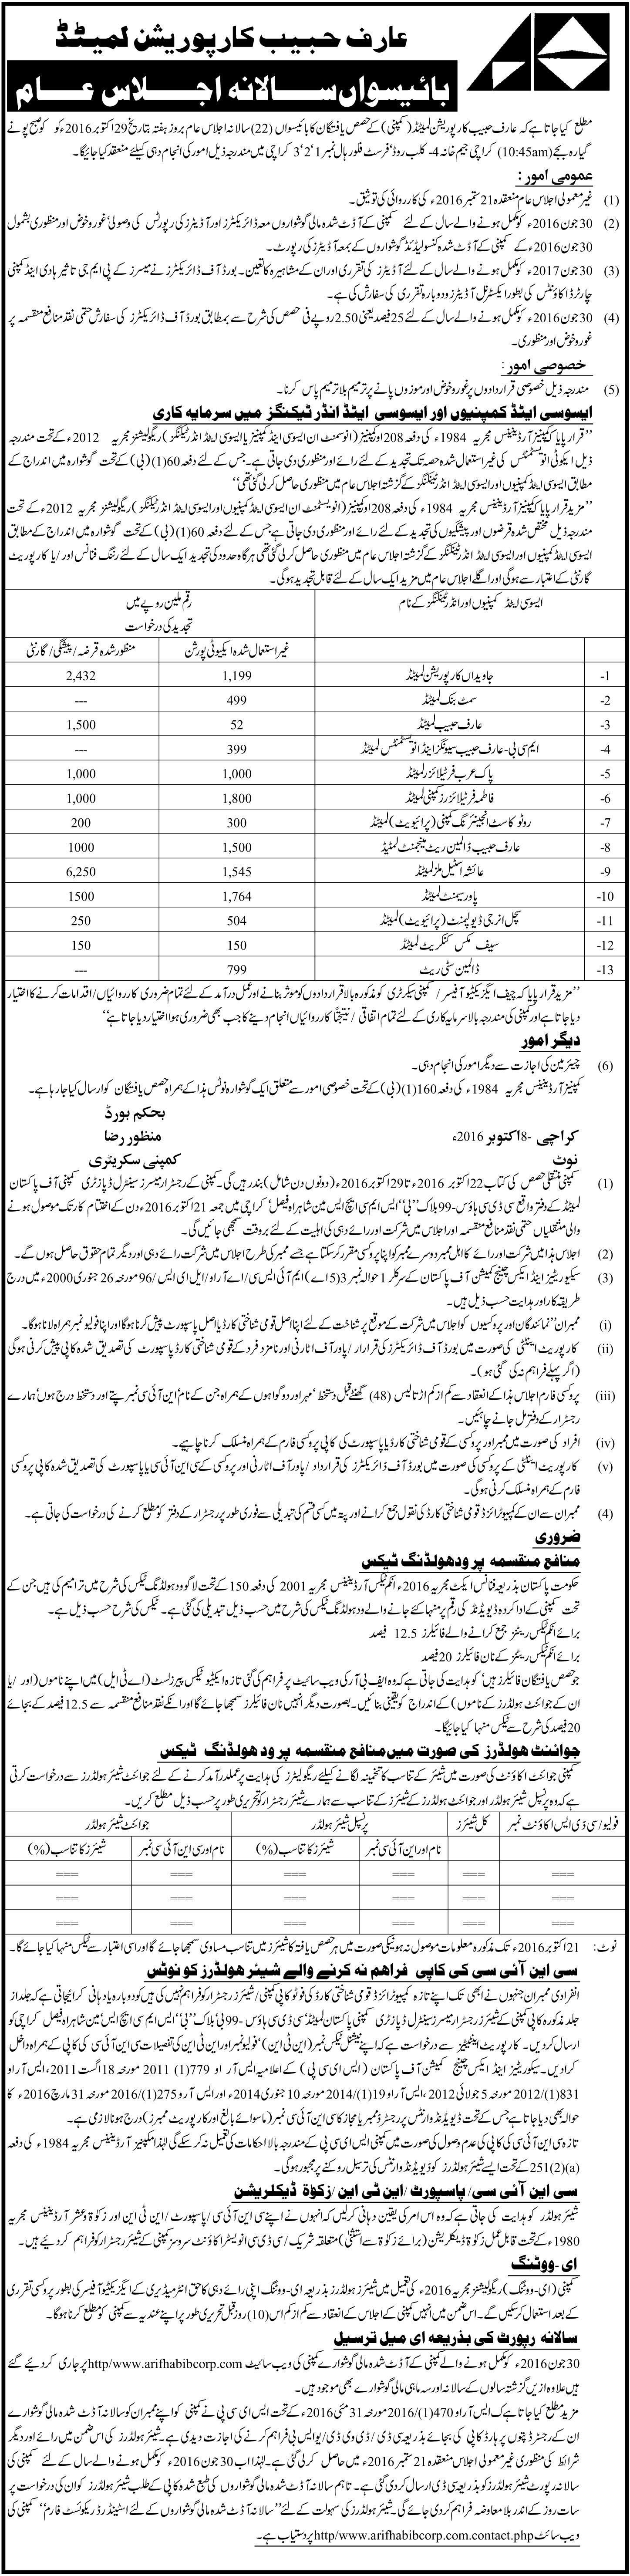 عارف حبیب کارپوریشن لمیٹڈ
بائیسواں سالانہ اجلاس عام
مطلع کیا جاتا ہے کہ عارف حبیب کارپوریشن لمیٹڈ (کمپنی) کے حصص یافتگان کا بائیسواں (22) سالانہ اجلاس عام بروز ہفتہ بتاریخ 29 اکتوبر 2016ء کو صبح پونے
گیارہ بجے (10:45am) کراچی جیم خانہ 4- کلب روڈ، فرسٹ فلور ہال نمبر 1، 2، 3 کراچی میں مندرجہ ذیل امور کی انجام دہی کیلئے منعقد کیا جائیگا۔
عمومی امور:
(1) غیر معمولی اجلاس عام منعقدہ 21 ستمبر 2016ء کی کارروائی کی توثیق۔
(2) 30 جون 2016ء کو مکمل ہونے والے سال کے لئے کمپنی کے آڈٹ شدہ مالی گوشواروں معہ ڈائریکٹرز اور آڈیٹرز کی رپورٹس کی وصولی، غور و خوض اور منظوری بشمول
30 جون 2016ء کے کمپنی کے آڈٹ شدہ کنسولیڈیٹڈ گوشواروں کے بمعہ آڈیٹرز کی رپورٹ۔
(3) 30 جون 2017ء کو مکمل ہونے والے سال کے لئے آڈیٹرز کی تقرری اور ان کے مشاہیرہ کا تعین۔ بورڈ آف ڈائریکٹرز نے میسرز کے پی ایم جی تاثیر ہادی اینڈ کمپنی
چارٹرڈ اکاؤنٹس کی بطور ایکسٹرنل آڈیٹرز دوبارہ تقرری کی سفارش کی ہے۔
(4) 30 جون 2016ء کو مکمل ہونے والے سال کے لئے 25 فیصد یعنی 2.50 روپے فی حصص کی شرح سے بمطابق بورڈ آف ڈائریکٹرز کی سفارش حتمی نقد منافع منقسمہ پر
غور و خوض اور منظوری۔
خصوصی امور:
(5) مندرجہ ذیل خصوصی قراردادوں پر غور و خوض اور موزوں پانے پر ترمیم بلا ترمیم پاس کرنا۔
ایسوسی ایٹڈ کمپنیوں اور ایسوسی ایٹڈ انڈر ٹیکنگز میں سرمایہ کاری
"قرار پایا کمپنیز آرڈیننس مجریہ 1984ء کی دفعہ 208 اور کمپنیز (انوسٹمنٹ ان ایسوسی ایٹڈ کمپنیز یا ایسوسی ایٹڈ انڈر ٹیکنگز) ریگولیشنز مجریہ 2012ء کے تحت مندرجہ
ذیل ایکوئٹی انوسٹمنٹس کی غیر استعمال شدہ حصہ تک تجدید کے لئے رائے اور منظوری دی جاتی ہے۔ جس کے لئے دفعہ 160(1)(بی) کے تحت گوشوارہ میں اندراج کے
مطابق ایسوسی ایٹڈ کمپنیوں اور ایسوسی ایٹڈ انڈر ٹیکنگز کے گزشتہ اجلاس عام میں منظوری حاصل کر لی گئی تھی"
"مزید قرار پایا کمپنیز آرڈیننس مجریہ 1984ء کی دفعہ 208 اور کمپنیز (انوسٹمنٹ ان ایسوسی ایٹڈ کمپنیوں یا ایسوسی ایٹڈ انڈر ٹیکنگز) ریگولیشنز مجریہ 2012ء کے تحت
مندرجہ ذیل مختص شدہ قرضوں اور پیشگیوں کی تجدید کے لئے رائے اور منظوری دی جاتی ہے جس کے لئے دفعہ 160(1)(بی) کے تحت گوشوارہ میں اندراج کے مطابق
ایسوسی ایٹڈ کمپنیوں اور ایسوسی ایٹڈ انڈر ٹیکنگز کے گزشتہ اجلاس عام میں منظوری حاصل کر لی گئی تھی ہر گاہ حدود کی تجدید ایک سال کے لئے رننگ فنانس اور/یا کارپوریٹ
گارنٹی کے اعتبار سے ہوگی اور اگلے اجلاس عام میں مزید ایک سال کے لئے قابل تجدید ہوگی۔
ایسوسی ایٹڈ کمپنیوں اور انڈر ٹیکنگز کے نام
رقم ملین روپے میں
تجدید کی درخواست
غیر استعمال شدہ ایکویٹی پورشن منظور شدہ قرضہ/پیشگی/گارنٹی
1- جاویداں کارپوریشن لمیٹڈ 1,199 2,432
2- سمٹ بنک لمیٹڈ 499 ---
3- عارف حبیب لمیٹڈ 52 1,500
4- ایم سی بی-عارف حبیب سیونگز اینڈ انویسٹمنٹس لمیٹڈ 399 ---
5- پاک عرب فرٹیلائزر لمیٹڈ 1,000 1,000
6- فاطمہ فرٹیلائزرز کمپنی لمیٹڈ 1,800 1,000
7- روٹو کاسٹ انجینئرنگ کمپنی (پرائیویٹ) لمیٹڈ 300 200
8- عارف حبیب ڈالمین ریٹ مینجمنٹ لمٹیڈ 1,500 1000
9- عائشہ اسٹیل ملز لمیٹڈ 1,545 6,250
10- پاور سیمنٹ لمیٹڈ 1,764 1500
11- سچل انرجی ڈیولپمنٹ (پرائیویٹ) لمیٹڈ 504 250
12- سیف مکس کنکریٹ لمیٹڈ 150 150
13- ڈالمین سٹی ریٹ 799 ---
"مزید قرار پایا کہ چیف ایگزیکٹیو آفیسر/کمپنی سیکرٹری کو مذکورہ بالا قراردادوں کو موثر بنانے اور عمل درآمد کے لئے تمام ضروری کارروائیاں/اقدامات کرنے کا اختیار
دیا جاتا ہے اور کمپنی کی مندرجہ بالا سرمایہ کاری کے لئے تمام اتفاقی/نتیجتاً کارروائیاں انجام دینے کا جب بھی ضروری ہو اختیار دیا جاتا ہے"
دیگر امور
(6) چیئرمین کی اجازت سے دیگر امور کی انجام دہی۔
کمپنیز آرڈیننس مجریہ 1984ء کی دفعہ 160(1)(بی) کے تحت خصوصی امور سے متعلق ایک گوشوارہ نوٹس ہذا کے ہمراہ حصص یافتگان کو ارسال کیا جا رہا ہے۔
بحکم بورڈ
کراچی -8 اکتوبر 2016ء منظور رضا
نوٹ کمپنی سکریٹری
(1) کمپنی منتقلی حصص کی کتاب 22 اکتوبر 2016ء تا 29 اکتوبر 2016ء (دونوں دن شامل) بند رہیں گی۔ کمپنی کے رجسٹرار میسرز سینٹرل ڈپازٹری کمپنی آف پاکستان
لمیٹڈ کے دفتر واقع سی ڈی سی ہاؤس، 99-بلاک "بی" ایس ایم سی ایچ ایس مین شاہراہ فیصل، کراچی میں جمعہ 21 اکتوبر 2016ء دن کے اختتام کار تک موصول ہونے
والی منتقلیاں حتمی نقد منافع منقسمہ اور اجلاس میں شرکت اور رائے دہی کی اہلیت کے لئے بروقت سمجھی جائیں گی۔
(2) اجلاس ہذا میں شرکت اور رائے کا اہل ممبر دوسرے ممبر کو اپنا پروکسی مقرر کر سکتا ہے جسے ممبر کی طرح اجلاس میں شرکت رائے دہی اور دیگر تمام حقوق حاصل ہوں گے۔
(3) سیکوریٹیز اینڈ ایکس چینج کمیشن آف پاکستان کے سرکلر 1 حوالہ نمبر 3(5اے) ایم آئی ایس سی/اے آر او/ایل ای ایس/96 مورخہ 26 جنوری 2000ء میں درج
طریقہ کار اور ہدایت حسب ذیل ہیں۔
(i) ممبران، نمائندگان اور پروکسیوں کو اجلاس میں شرکت کے موقع پر شناخت کے لئے اپنا اصل قومی شناختی کارڈ یا اصل پاسپورٹ پیش کرنا ہوگا اور اپنا فولیو نمبر ہمراہ لانا ہوگا۔
(ii) کارپوریٹ اینٹٹی کی صورت میں بورڈ آف ڈائریکٹرز کی قرارار/پاور آف اٹارنی اور نامزد فرد کے قومی شناختی کارڈ یا پاسپورٹ کی تصدیق شدہ کاپی پیش کرنی ہوگی
(اگر پہلے فراہم نہ کی گئی ہو)۔
(iii) پروکسی فارم اجلاس ہذا کے انعقاد سے کم از کم اڑتالیس (48) گھنٹے قبل دستخط، مہر اور دو گواہوں کے ہمراہ جن کے نام، این آئی سی نمبر، پتے اور دستخط درج ہوں، ہمارے
رجسٹرار کے دفتر مل جانے چاہئیں۔
(iv) افراد کی صورت میں ممبر اور پروکسی کے قومی شناختی کارڈ یا پاسپورٹ کی کاپی پروکسی فارم کے ہمراہ منسلک کرنا چاہیے۔
(v) کارپوریٹ اینٹٹی کے پروکسی کی صورت میں بورڈ آف ڈائریکٹرز کی قرارداد/پاور آف اٹارنی اور پروکسی کے سی این آئی سی یا پاسپورٹ کی تصدیق شدہ کاپی پروکسی
فارم کے ہمراہ منسلک کرنی ہوگی۔
(4) ممبران سے ان کے کمپیوٹرائزڈ قومی شناختی کارڈ کی نقول جمع کرانے اور پتہ میں کسی قسم کی تبدیلی سے فوری طور پر رجسٹرار کے دفتر کو مطلع کرنے کی درخواست کی جاتی ہے۔
ضروری
منافع منقسمہ پر ودہولڈنگ ٹیکس
حکومت پاکستان بذریعہ فنانس ایکٹ مجریہ 2016ء انکم ٹیکس آرڈیننس مجریہ 2001 کی دفعہ 150 کے تحت لاگو ودہولڈنگ ٹیکس کی شرح میں ترامیم کی ہیں جن کے
تحت کمپنی کے ادا کردہ ڈیویڈنڈ کی رقم پر منہا کئے جانے والے ودہولڈنگ ٹیکس کی شرح میں حسب ذیل تبدیلی کی گئی ہے۔ ٹیکس کی شرح حسب ذیل ہے۔
برائے انکم ٹیکس ریٹرنز جمع کرانے والے فائیلرز 12.5 فیصد
برائے انکم ٹیکس ریٹرنز کے نان فائیلرز 20 فیصد
جو حصص یافتگان فائیلرز ہیں، کو ہدایت کی جاتی ہے کہ وہ ایف بی آر کی ویب سائیٹ پر فراہم کی گئی تازہ ایکٹیو ٹیکس پیئرز لسٹ (اے ٹی ایل) میں اپنے ناموں (اور/یا
ان کے جوائنٹ ہولڈرز کے ناموں) کے اندراج کو یقینی بنائیں۔ بصورت دیگر انہیں نان فائیلرز سمجھا جائے گا اور انکے نقد منافع منقسمہ سے 12.5 فیصد کے بجائے
20 فیصد کی شرح سے ٹیکس منہا کیا جائیگا۔
جوائنٹ ہولڈرز کی صورت میں منافع منقسمہ پر ودہولڈنگ ٹیکس
کمپنی جوائنٹ اکاؤنٹ کی صورت میں شیئر کے تناسب کا تخمینہ لگانے کیلئے ریگولیٹرز کی ہدایت پر عملدرآمد کرنے کے لئے جوائنٹ شیئر ہولڈرز سے درخواست کرتی
ہے کہ وہ پرنسپل شیئر ہولڈر اور جوائنٹ ہولڈرز کے شیئرز کے تناسب سے ہمارے شیئر رجسٹرار کو تحریری طور پر حسب ذیل مطلع کریں۔
فولیو/سی ڈی ایس اکاؤنٹ نمبر کل شیئرز پرنسپل شیئر ہولڈر جوائنٹ شیئر ہولڈر
نام اور این آئی سی نمبر شیئرز کا تناسب (%) نام اور سی این آئی سی نمبر شیئرز کا تناسب (%)
=== === === === === ===
=== === === === === ===
=== === === === === ===
نوٹ: 21 اکتوبر 2016ء تک مذکورہ معلومات موصول نہ ہونیکی صورت میں ہر حصص یافتہ کا شیئرز میں تناسب مساوی سمجھا جائے گا اور اسی اعتبار سے ٹیکس منہا کیا جائے گا۔
سی این آئی سی کی کاپی فراہم نہ کرنے والے شیئر ہولڈرز کو نوٹس
انفرادی ممبران جنہوں نے ابھی تک اپنے تازہ کمپیوٹرائزڈ قومی شناختی کارڈ کی فوٹو کاپی کمپنی/شیئرز رجسٹرار کو فراہم نہیں کی ہیں کو دوبارہ یاد دہانی کرائیجاتی ہے کہ جلد از
جلد مذکورہ کاپی کمپنی کے شیئرز رجسٹرار میسرز سینٹرل ڈپازٹری کمپنی پاکستان لمیٹڈ، سی ڈی سی ہاؤس، 99-بی، بلاک "بی" ایس ایم سی ایچ ایس مین شاہراہ فیصل کراچی کو
ارسال کردیں۔ کارپوریٹ اینٹیٹیز سے درخواست ہے کہ اپنے نیشنل ٹیکس نمبر (این ٹی این)، فولیو نمبر اور این ٹی این کی تفصیلات سی این آئی سی کی کاپی کے ہمراہ داخل
کرادیں۔ سیکوریٹیز اینڈ ایکس چینج کمیشن آف پاکستان (ایس ای سی پی) کے اعلامیہ ایس آر او 779(1) 2011 مورخہ 18 اگست 2011، ایس آر او
831(1)/2012 مورخہ 5 جولائی 2012، ایس آر او 19(1)/2014 مورخہ 10 جنوری 2014ء اور ایس آر او 275(1)/2016 مورخہ 31 مارچ 2016ء کا
حوالہ بھی دیا جاتا ہے جس کے تحت ڈیویڈنڈ وارنٹس پر رجسٹرڈ ممبر یا مجاز کا سی این آئی سی نمبر (ماسوائے نابالغ اور کارپوریٹ ممبرز) درج ہونا لازمی ہے۔
تازہ سی این آئی سی کی کاپی کی عدم وصولی کی صورت میں کمپنی ایس ای سی پی کے مندرجہ بالا احکامات کی تعمیل نہ کرسکے گی لہٰذا کمپنیز آرڈیننس مجریہ 1984ء کی دفعہ
251(2)(a) کے تحت ایسے شیئر ہولڈرز کو ڈیویڈنڈ وارنٹس کی ترسیل روکنے پر مجبور ہوگی۔
سی این آئی سی/پاسپورٹ/این ٹی این/زکوٰۃ ڈیکلریشن
شیئر ہولڈر کو ہدایت کی جاتی ہے کہ وہ اس امر کی یقین دہانی کرلیں کہ انہوں نے اپنے سی این آئی سی/پاسپورٹ/این ٹی این اور زکوٰۃ و عشر آرڈیننس مجریہ
1980ء کے تحت قابل عمل زکوٰۃ ڈیکلریشن (برائے زکوٰۃ سے استثنٰی) متعلقہ شریک/سی ڈی سی انویسٹر اکاؤنٹ سروسز کمپنی کے شیئر رجسٹرار کو فراہم کردیئے ہیں۔
ای-ووٹنگ
کمپنی (ای-ووٹنگ) ریگولیشنز مجریہ 2016ء کی تعمیل میں شیئرز ہولڈرز بذریعہ ای-ووٹنگ اپنی رائے دہی کا حق انٹرمیڈیری کے ایگزیکٹیو آفیسر کی بطور پروکسی تقرری
کے بعد استعمال کرسکیں گے۔ اس ضمن میں انہیں کمپنی کے اجلاس کے انعقاد سے کم از کم دس (10) روز قبل تحریری طور پر اپنے عندیہ سے کمپنی کو مطلع کرنا ہوگا۔
سالانہ رپورٹ کی بذریعہ ای میل ترسیل
30 جون 2016ء کو مکمل ہونے والے کمپنی کے آڈٹ شدہ مالی گوشوارے کمپنی کی ویب سائیٹ http/www.arifhabibcorp.com پر جاری کردیئے گئے
ہیں علاوہ ازیں گزشتہ سالوں کے سالانہ اور سہ ماہی مالی گوشوارے بھی موجود ہیں۔
مزید مطلع کیا جاتا ہے کہ ایس آر او 470(1)/2016 مورخہ 31 مئی 2016ء کے تحت ایس ای سی پی نے کمپنی کو اپنے ممبران کو سالانہ آڈٹ شدہ مالی گوشوارے
ان کے رجسٹرڈ پتوں پر ہارڈ کاپی کی بجائے بذریعہ سی ڈی/ڈی وی ڈی/یو ایس بی فراہم کرنے کی اجازت دیدی ہے۔ شیئر ہولڈرز کی اس ضمن میں رائے اور دیگر
شرائط کی منظوری غیر معمولی اجلاس منعقدہ 21 ستمبر 2016ء میں حاصل کرلی گئی ہے۔ لہٰذا اب 30 جون 2016ء کو مکمل ہونے والے سال کے لئے کمپنی کی
سالانہ رپورٹ شیئر ہولڈرز کو بذریعہ سی ڈی ارسال کردی گئی ہے۔ تاہم سالانہ آڈٹ شدہ مالی گوشواروں کی طبع شدہ کاپی کے طلب شیئر ہولڈرز کو ان کی درخواست پر
سات روز کے اندر بلا معاوضہ فراہم کردی جائے گی۔ شیئر ہولڈرز کی سہولت کے لئے "سالانہ آڈٹ شدہ مالی گوشواروں کے لئے اسٹینڈرڈ ریکوئسٹ فارم" کمپنی کی
ویب سائٹ http/www.arifhabibcorp.com.contact.php پر دستیاب ہے۔